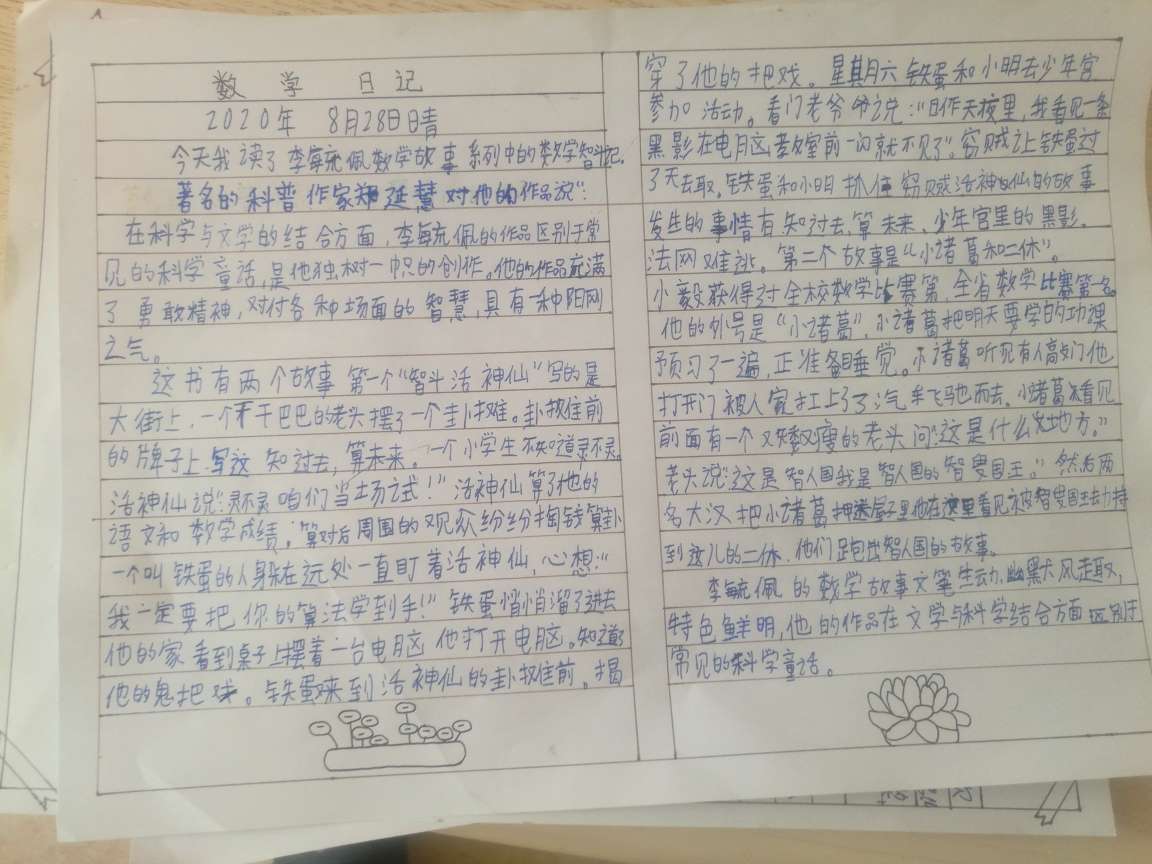 数 学 日记
2020年 8月28日晴
今天我读了李毓佩数学故事系列中的数学智斗记。
著名的科普作家郑延慧对他的作品说“:
在科学与文学的结合方面，李毓佩的作品区别于常
见的科学童话，是他独树一帜的创作。他的作品充满
了勇敢精神，对付各种场面的智慧，具有一种阳刚
之气。
这书有两个故事 第一个“智斗活神仙”写的是
大街上，一个干巴巴的老头摆了一个卦摊。卦摊前
的牌子上写这 知过去，算未来。一个小学生不知道灵不灵。
活神仙说“灵不灵咱们当场试！”活神仙算了他的
语文和数学成绩，算对后周围的观众纷纷掏钱算卦
一个叫铁蛋的人躲在远处一直盯着活神仙，心想“
我一定要把你的算法学到手！”铁蛋悄悄溜了进去
他的家看到桌子上摆着一台电脑 他打开电脑。知道了
他的鬼把戏。铁蛋来到活神仙的卦摊前。揭
穿了他的把戏。星期六铁蛋和小明去少年宫
参加活动。看门老爷爷说：“昨天夜里，我看见一条
黑影在电脑教室前一闪就不见了”。穷贼让铁蛋过
了天去取。铁蛋和小明抓住穷贼活神仙的故事
发生的事情有知过去，算未来，少年宫里的黑影，
法网难逃。第二个故事是“小诸葛和二休”。
小毅获得过全校数学比赛第，全省数学比赛第一名
他的外号是“小诸葛”。小诸葛把明天要学的功课
预习了一遍，正准备睡觉。小诸葛听见有人敲门他
打开门被人家扛上了汽车飞马也而去。小诸葛看见
前面有一个又矮又瘦的老头问“这是什么地方。”
老头说“这是智人国我是智人国的智叟国王。”然后两
名大汉把小诸葛押送屋子里他在这里看见被智叟国王劫持
到这儿的二休，他们跑出智人国的故事。
李毓佩的数学故事文笔生动，幽默风趣，
特色鲜明，他的作品在文学与科学结合方面区别于
常见的科学童话。